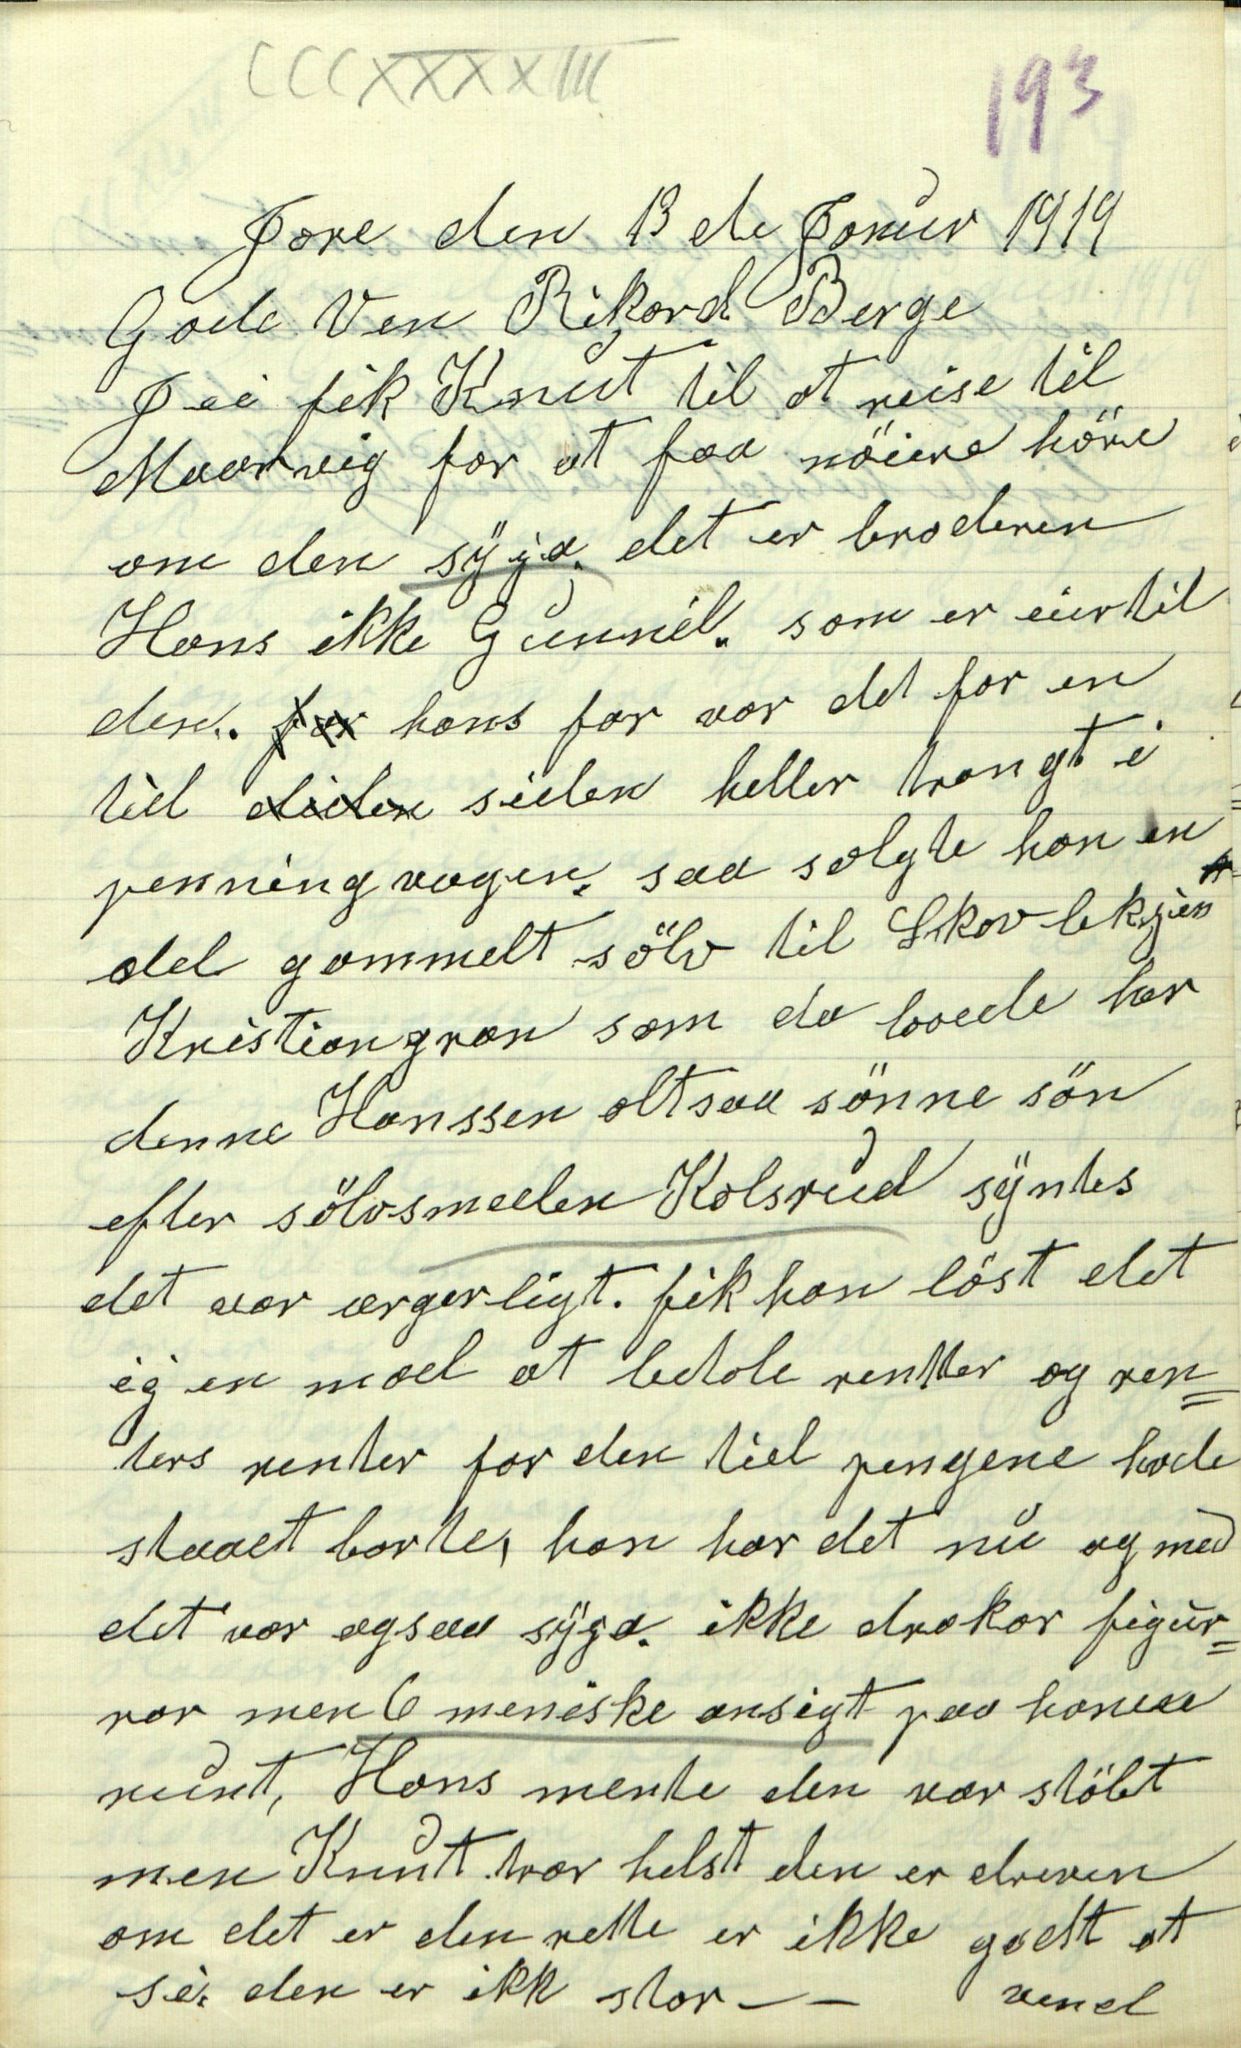 CCCXXXXIII
193
Jore den 13 de Januar 1919
Gode Ven Rikard Berge
Jei fik Knut til at reise til
Maarvig for at faa nöiere höre
om den syja. det er broderen
Hans ikke Gunnil. som er eier til
den. for hans far var det for en
tid diden siden heller trangt i
penningvegen. saa solgte han en
del gammelt sölv til Skovbekjien
Kristian gran som da boede her
denne Hanssen altsaa sönne sön
efter sölvsmeden Kolsrud syntes
det var ærgerligt. fik han löst det
igjen mod at betale rentter og ren=
ters renter for den tid pengene hade
staaet borte, han har det nu og med
det var ogsaa syja. ikke drakar figur=
rar men 6 meniske ansigt paa kanten
runt, Hans mente den var stöbt
men Knut tror helst den er dreven
om det er den rette er ikke godt at
si. den er ikk stor — — vend